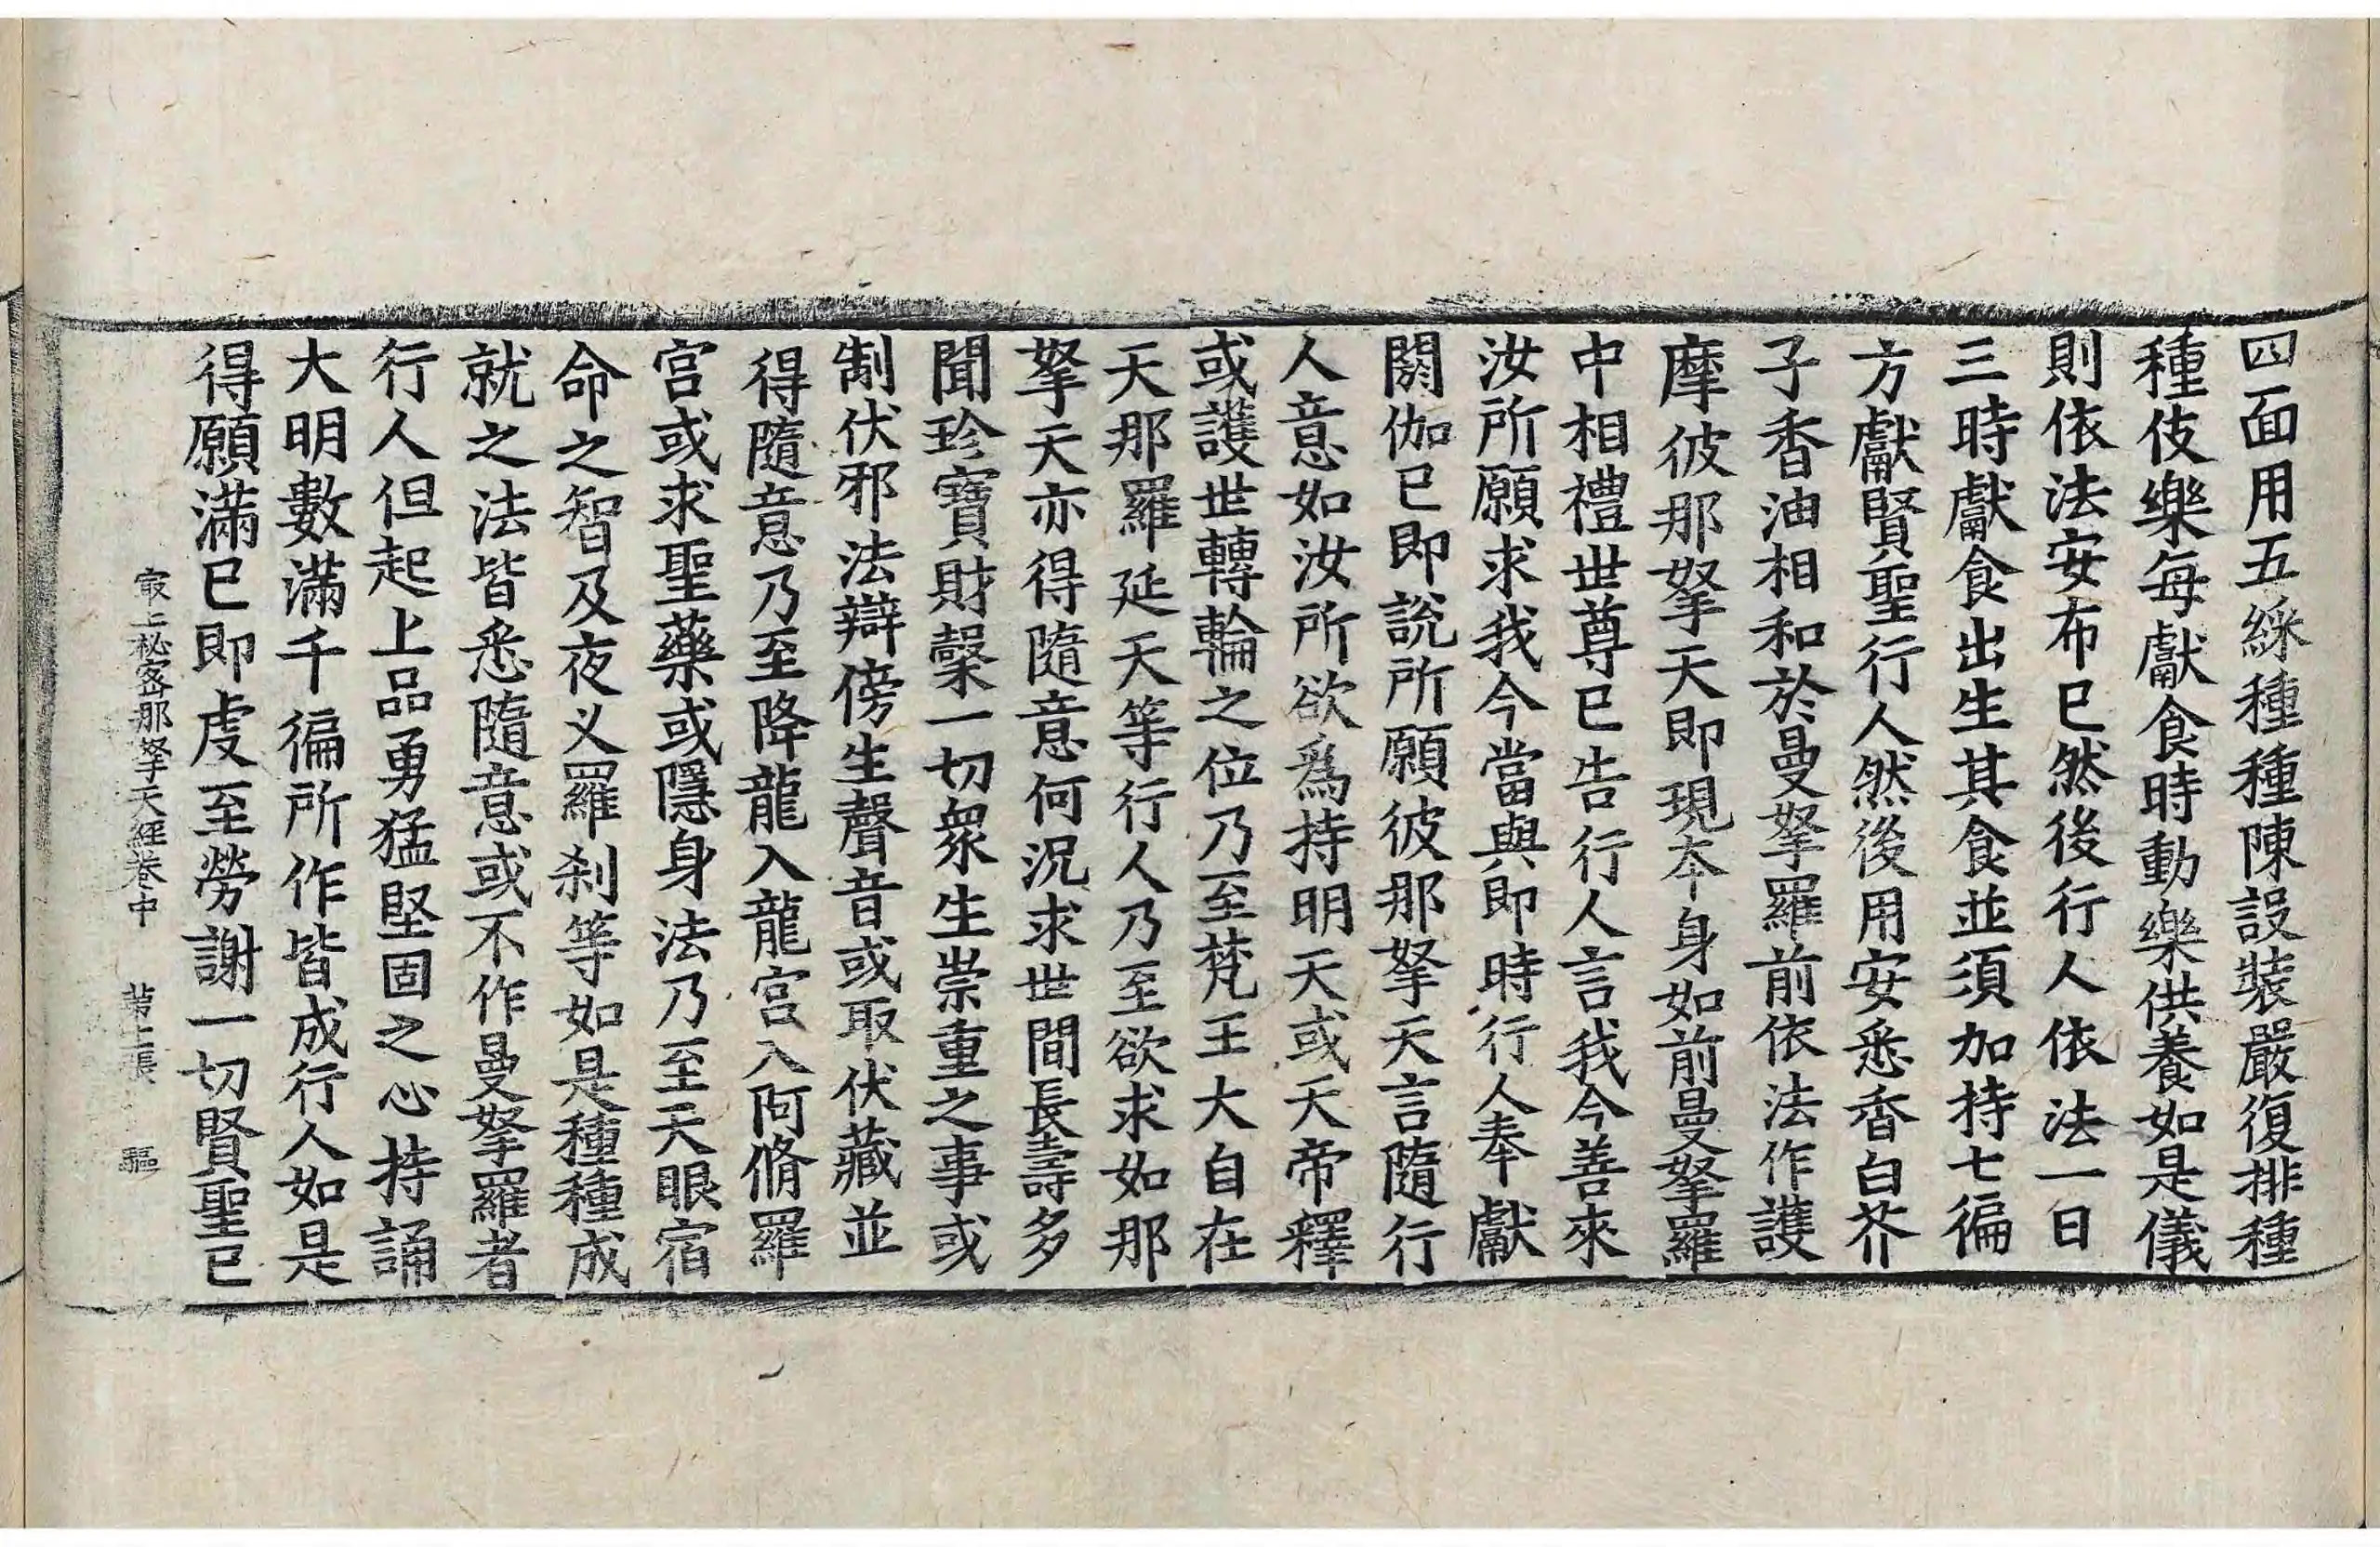 四面用五綵種種陳設裝嚴復排種
種伎樂每獻食時動樂供養如是儀
則依法安布已然後行人依法一日
三時獻食出生其食並須加持七徧
方獻賢聖行人然後用安悉香白芥
子香油相和於曼拏羅前依法作護
摩彼那拏天即現本身如前曼拏羅
中相禮世尊已告行人言我今善來
汝所願求我今當與即時行人奉獻
閼伽已即說所願彼那拏天言隨行
人意如汝所欲爲持明天或天帝釋
或護世轉輪之位乃至梵王大自在
天那羅延天等行人乃至欲求如那
拏天亦得隨意何況求世間長壽多
聞珍寶財穀一切衆生崇重之事或
制伏邪法辯傍生聲音或取伏藏並
得隨意乃至降龍入龍宮入阿脩羅
宮或求聖藥或隱身法乃至天眼宿
命之智及夜义羅刹等如是種種成
就之法皆悉隨意或不作曼拏羅者
行人但起上品勇猛堅固之心持誦
大明數滿千徧所作皆成行人如是
得願滿已即虔至勞謝一切賢聖已
最上秘密那拏天經卷中 第上張 驅